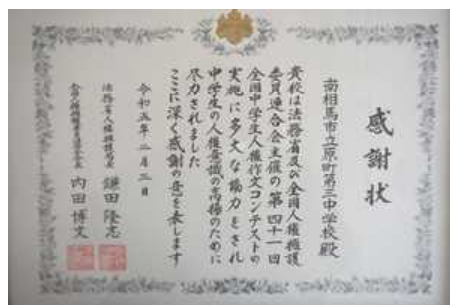 感謝状
南相馬市立原町第三中学校殿
貴校は法務省及び全国人権擁護
委員連合会主催の第四十一回
全国中学生人権作文コンテストの
実施に多大な協力をされ
中学生の人権意識の高揚のために
尽力されました
ここに深く感謝の意を表します
令和五年二月三日
法務省人権擁護局長 鎌田隆志
全国人権擁護委員連合会長 内田博文